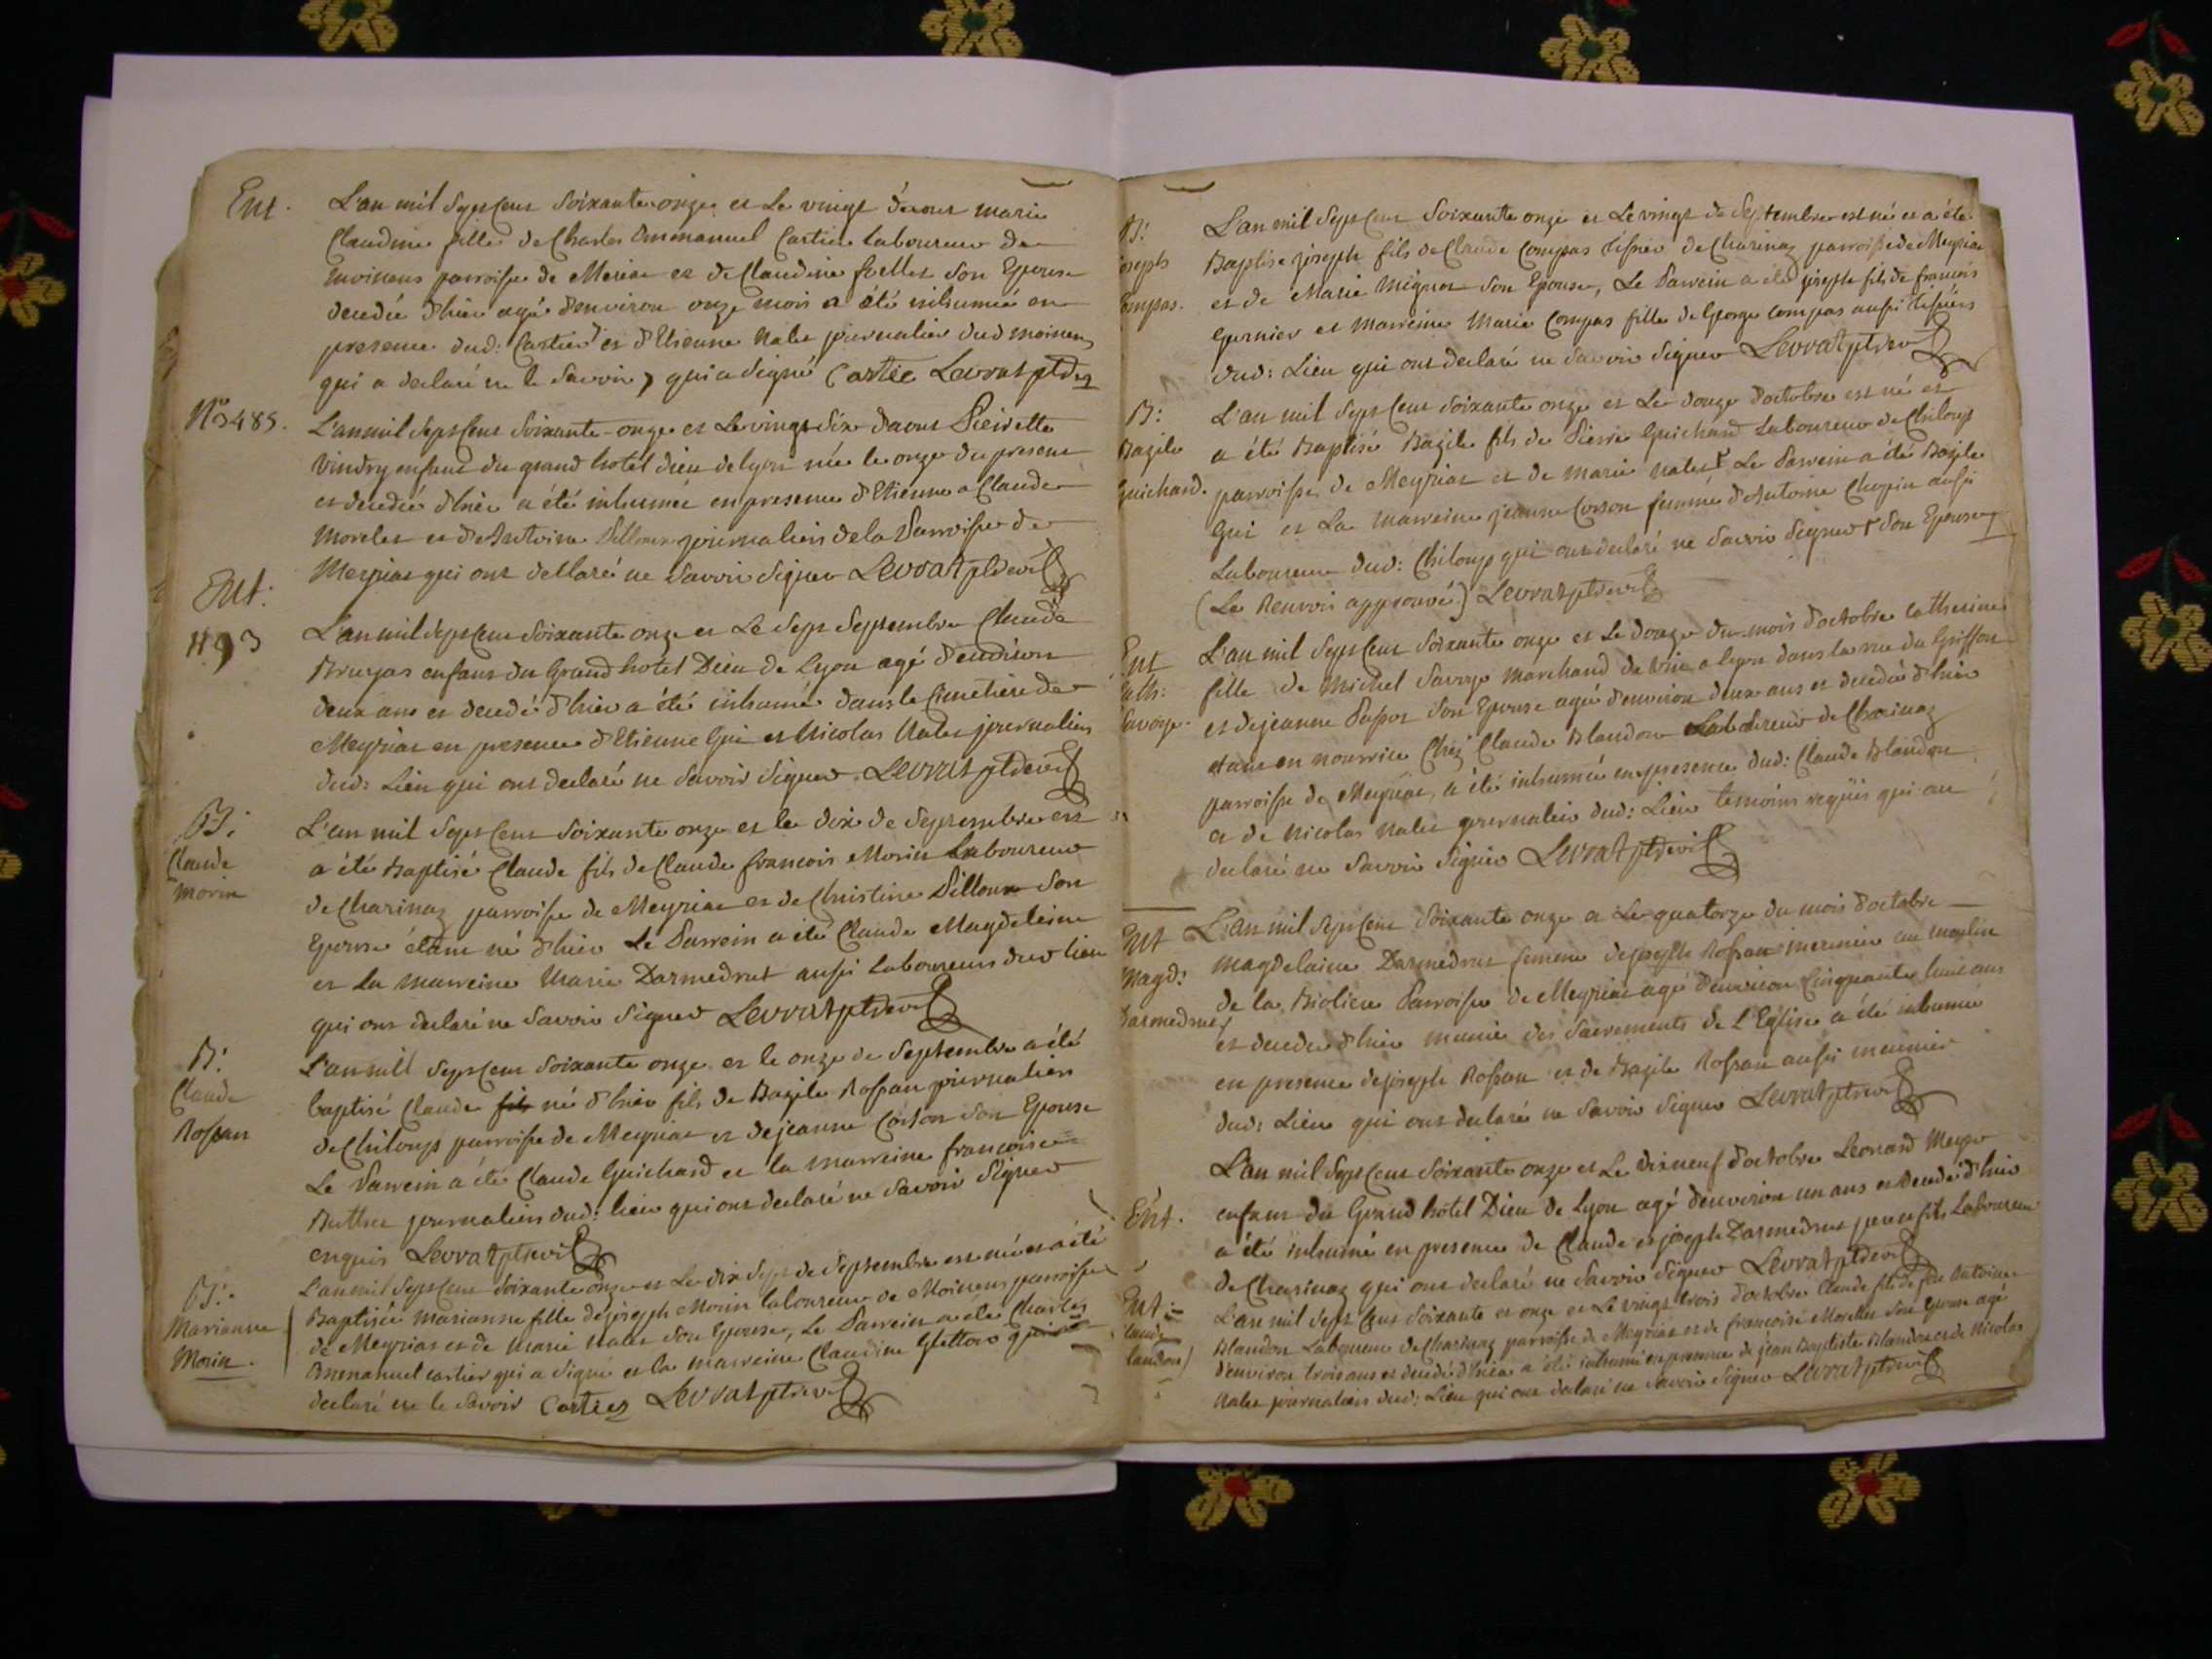 Ent. L'an mil sept cent soixante onze et le vingt d'aout marie
Claudine fille de Charles Emmanuel Cartier laboureur de
moinans parroisse de Meriat et de Claudine son Epouse
decedée d'hier agé d'environ onze mois a été inhumée en
presence dud: Cartier et d'Etienne Nalet journalier dud moinans
qui a declaré ne le savoir, qui a signé Cartie Levrat ptre
N° 3485. L'an mil sept cent soixante-onze et le vingt six d'aout Pierrette
Vindry enfant du grand hotel dieu de lyon née le onze du present
et decedée d'hier a été inhumée en presence d'Etienne a Claude
Morelet et d'Antoine journaliers de la Parroisse de
Meyriat qui ont declaré ne savoir signer Levrat ptre
Ent. L'an mil sept cent soixante onze et le sept septembre Claude
1193 Bruyas enfant du Grand hotel Dieu de Lyon agé d'environ
deux ans et decedé d'hier a été inhumé dans le Cimetiere de
Meyriat en presence d'Etienne Gui et Nicolas Nalet journaliers
dud: Lieu qui ont declaré ne savoir signer. Levrat ptre
B: L'an mil sept cent soixante onze et le dix de septembre est
Claude a été Baptisé Claude fils de Claude francois Morin Laboureur
morin de Charinaz parroisse de Meyriat et de Christine Pilloux son
Epouse étant né d'hier Le Parrein a été Claude Magdeleine
et la marreine Marie Darmedrut aussi Laboureurs dud lieu
qui ont declaré ne savoir signer Levrat ptre
B: L'an mil sept cent soixante onze et le onze de septembre a été
Claude baptisé Claude fils né d'hier fils de Bazile Rossan journalier
Rossan de Chiloup parroisse de Meyriat et de jeanne Corson son Epouse
Le Parrein a été Claude Guichard et la marreine francoise
Buttet journaliers dud: lieu qui ont declaré ne savoir signer
enquis Levrat ptre
B: L'an mil sept cent soixante onze et Le dix sept de septembre est née et a été
Marianne Baptisée Marianne fille de joseph Morin laboureur de Moinens parroisse
Morin. de Meyriat et de Marie Nalet son Epouse, Le Parrein a été Charles
Emmanuel cartier qui a signé et la marreine Claudine qui a
declaré ne le savoir Cartier Levrat ptre
B: L'an mil sept cent soixante onze et Le vingt de septembre est né et a été
joseph Baptisé joseph fils de Claude Compas tissier de Charinaz parroisse de Meyriat
Compas. et de Marie Mignot son Epouse, Le Parrein a été joseph fils de francois
Gurnier et Marreine Marie Compas fille de George Compas aussi tissiers
dud: Lieu qui ont declaré ne savoir signer Levrat ptre
B: L'an mil sept cent soixante onze et Le douze d'octobre est né et
Bazile a été Baptisé Bazile fils de Pierre Guichard Laboureur de Chiloup
Guichard. parroisse de Meyriat et de marie Nalet Le Parrein a été Bazile
Gui et La marreine jeanne Corson femme d'Antoine Chopin aussi
Laboureur dud: Chiloup qui ont declaré ne savoir signer son Epouse
(Le Renvoi approuvé) Levrat ptre
Ent L'an mil sept cent soixante onze et Le douze du mois d'octobre catherine
Cath: fille de Michel Savoye marchand de vin a lyon dans la rue du Griffon
Savoye. et de jeanne son Epouse agée d'environ deux ans et decedée d'hier
etant en nourrice Chez Claude Blandon Laboureur de Charinaz
parroisse de Meyriat, a été inhumée en presence dud: Claude Blandon
et de Nicolas Nalet journalier dud: Lieu temoins requis qui ont
declaré ne savoir signer Levrat ptre
Ent L'an mil sept cent soixante onze et Le quatorze du mois d'octobre
Magd: magdelaine Darmedrut femme de joseph Rossan meunier au moulin
Darmedrut de la Bioliere Parroisse de Meyriat agé d'environ Cinquante huit ans
et decedée d'hier munie des sacrements de l'Eglise a été inhumée
en presence de joseph Rossan et de Bazile Rossan aussi meunier
dud: Lieu qui ont declaré ne savoir signer Levrat ptre
L'an mil sept cent soixante onze et Le dix neuf d'octobre Leonard
Ent. enfant du Grand hôtel Dieu de Lyon agé d'environ un ans et decedé d'hier
a été inhumé en presence de Claude et joseph Darmedrut pere et fils Laboureur
de Charinaz qui ont declaré ne savoir signer Levrat ptre
Ent: L'an mil sept cent soixante et onze et Le vingt trois d'octobre Claude fils de feu Antoine
Claude Blandon Laboureur de Charinaz parroisse de Meyriat et de francoise Morellet son Epouse agé
landon d'environ trois ans et decedé d'hier a été inhumé en presence de jean Baptiste Blandon et de Nicolas
Nalet journaliers dud: Lieu qui ont declaré ne savoir signer Levrat ptre